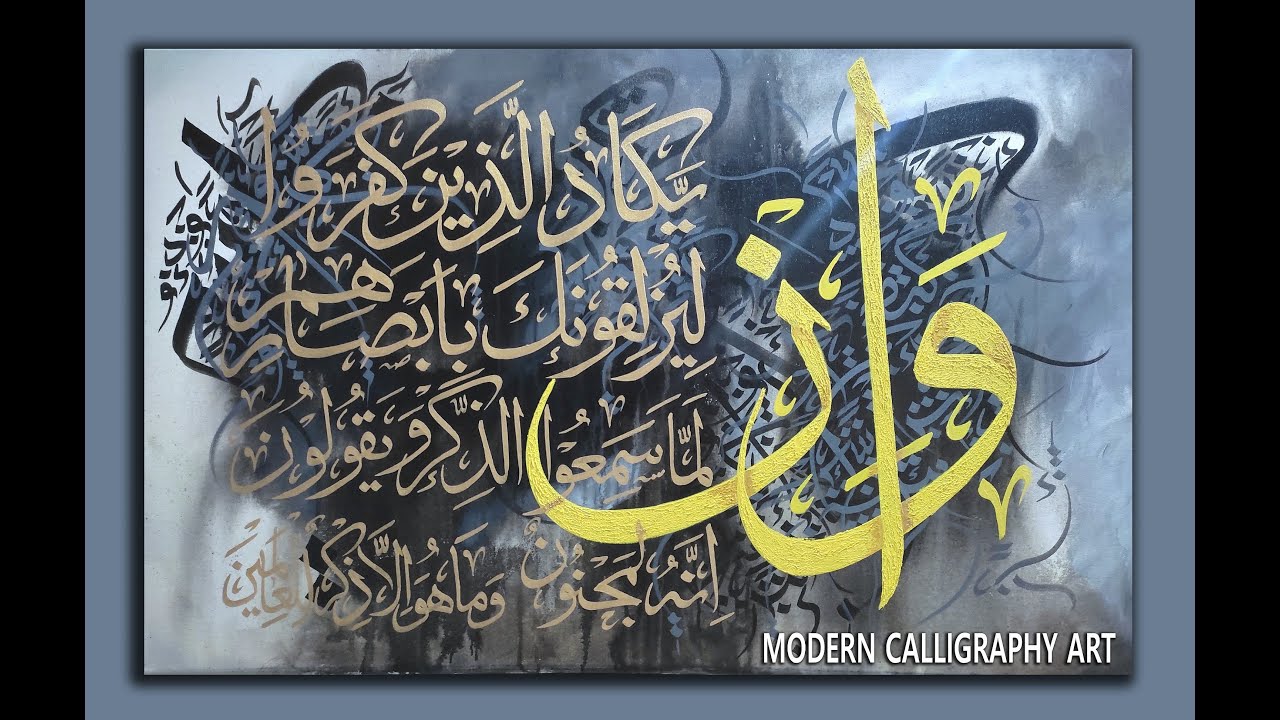 وَإِن
يَّكَادُ الَّذِينَ كَفَرُوا
لَيُزْلِقُونَكَ بِأَبْصَارِهِمْ
لَمَّا سَمِعُوا الذِّكْرَ وَيَقُولُونَ
إِنَّهُ لَمَجْنُونٌ وَمَا هُوَ إِلَّا ذِكْرٌ لِّلْعَالَمِينَ
MODERN CALLIGRAPHY ART